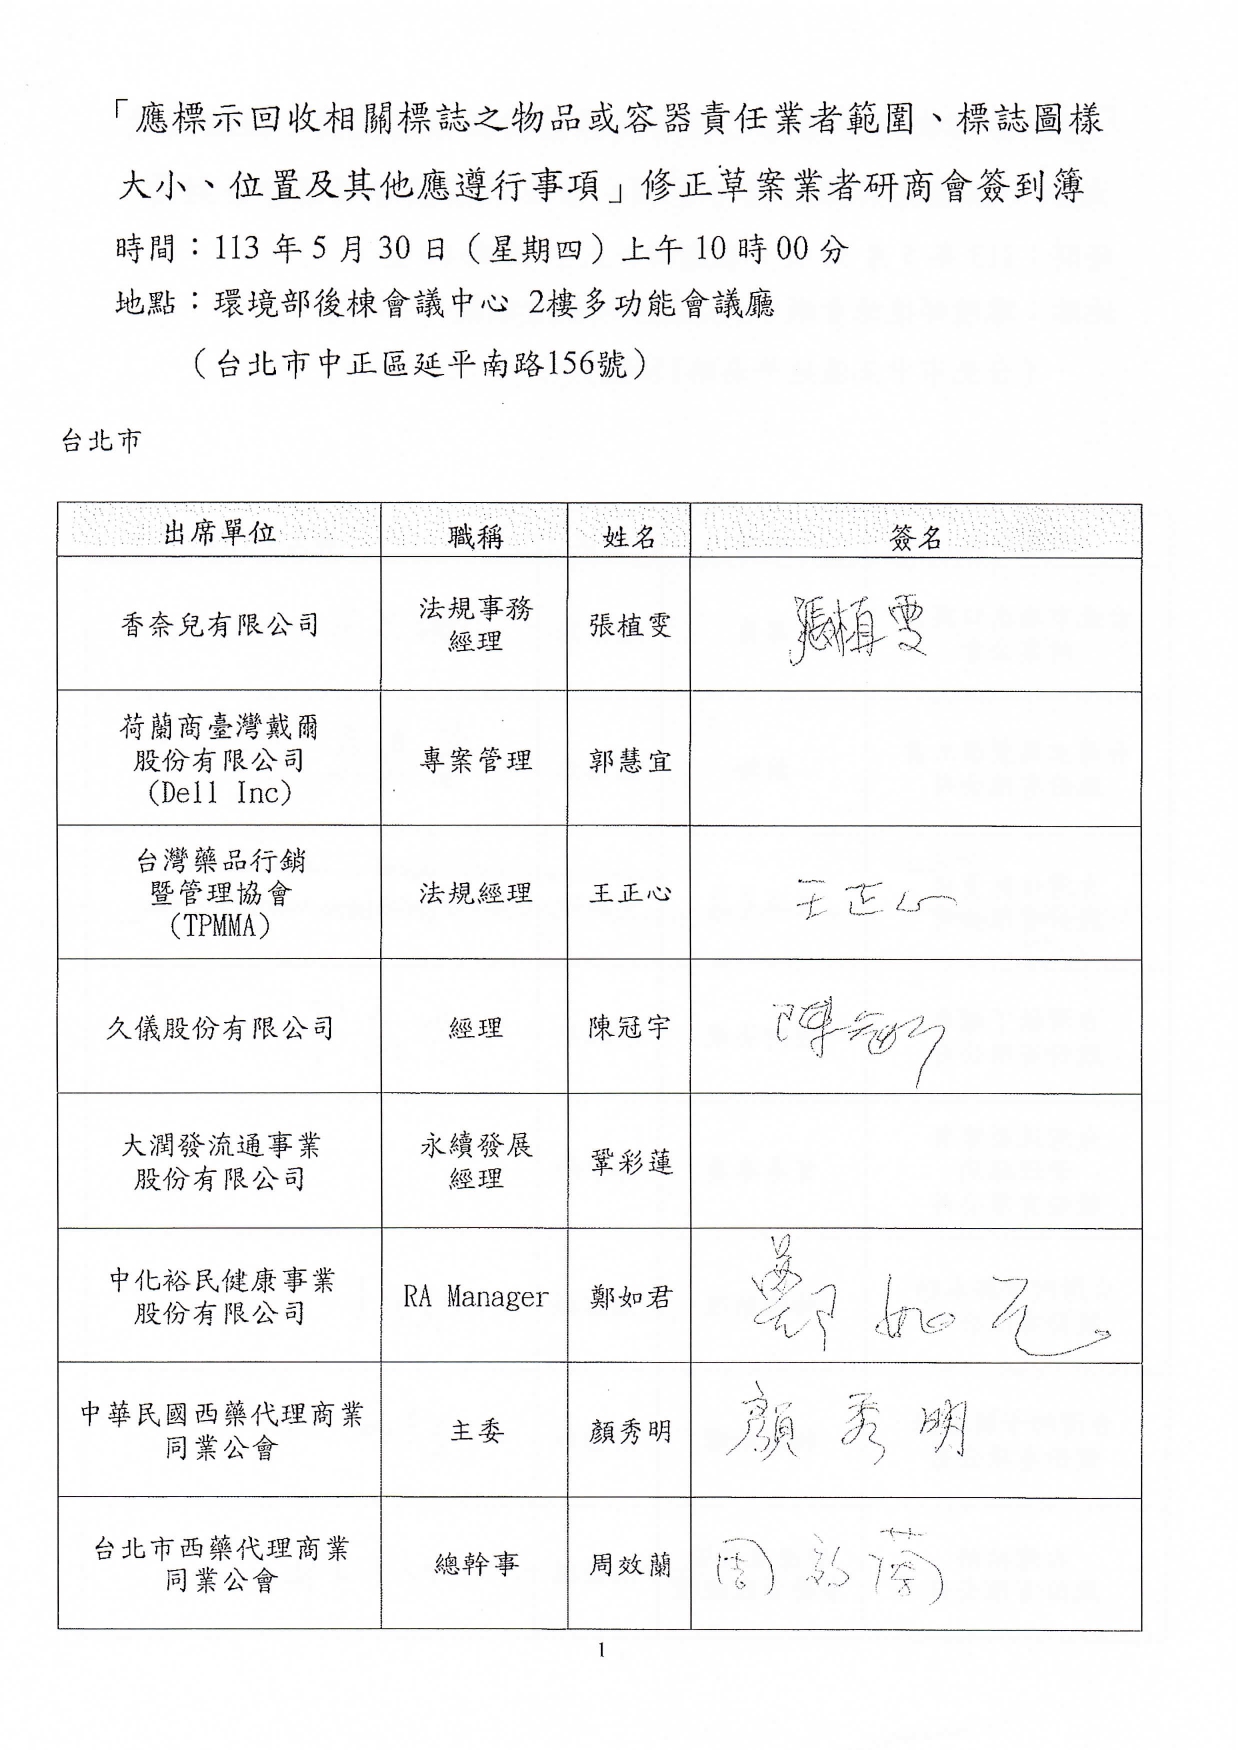 「應標示回收相關標誌之物品或容器責任業者範圍、標誌圖樣
大小、位置及其他應遵行事項」修正草案業者研商會簽到簿
時間：113 年 5 月 30 日（星期四）上午 10 時 00 分
地點：環境部後棟會議中心 2樓多功能會議廳
（台北市中正區延平南路156號）
台北市
出席單位 職稱 姓名 簽名
香奈兒有限公司 法規事務 經理 張植雯 張植雯
荷蘭商臺灣戴爾
股份有限公司 專案管理 郭慧宜
(Dell Inc)
台灣藥品行銷
暨管理協會 法規經理 王正心 王正心
(TPMMA)
久儀股份有限公司 經理 陳冠宇 陳冠宇
大潤發流通事業 永續發展
股份有限公司 經理 鞏彩蓮
中化裕民健康事業
股份有限公司 RA Manager 鄭如君 鄭如君
中華民國西藥代理商業
同業公會 主委 顏秀明 顏秀明
台北市西藥代理商業
同業公會 總幹事 周效蘭 周效蘭
1